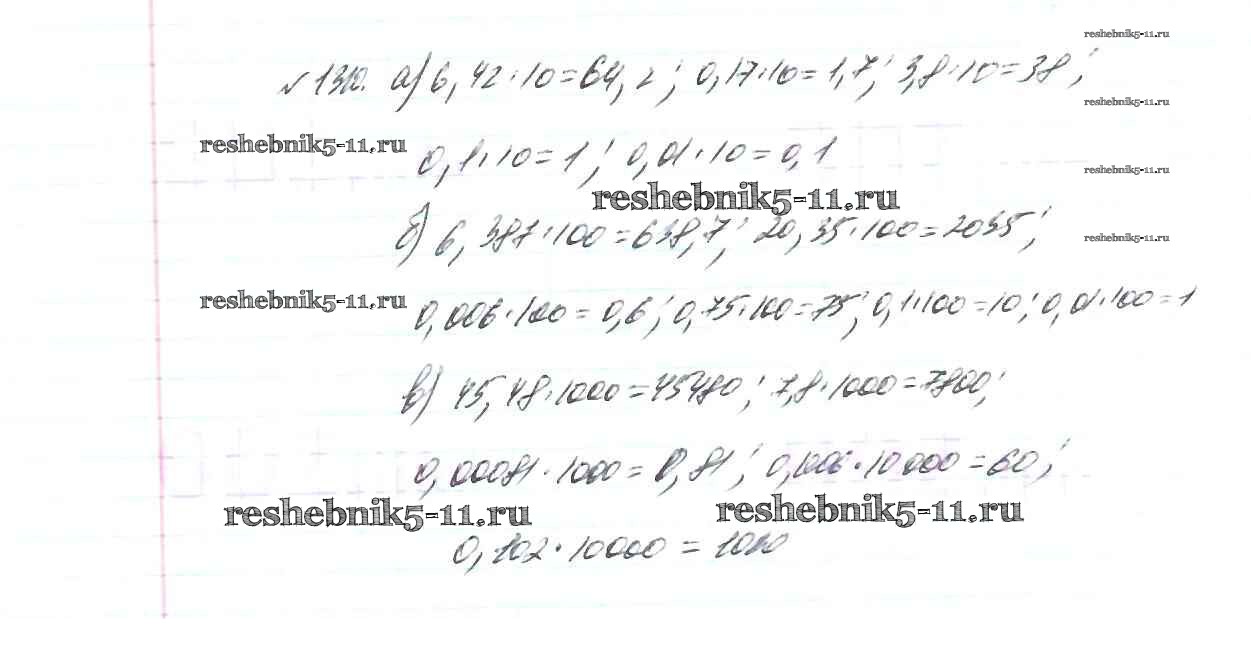 reshebnik5-11.ru
№1312. а) 6,42·10=64,2; 0,17·10=1,7; 3,8·10=38;
reshebnik5-11.ru
reshebnik5-11.ru
0,1·10=1; 0,01·10=0,1
reshebnik5-11.ru
reshebnik5-11.ru
б) 6,387·100=638,7; 20,35·100=2035;
reshebnik5-11.ru
reshebnik5-11.ru
0,006·100=0,6; 0,75·100=75; 0,1·100=10; 0,01·100=1
в) 45,48·1000=45480; 7,8·1000=7800;
0,00081·1000=0,81; 0,006·10000=60;
reshebnik5-11.ru reshebnik5-11.ru
0,102·10000=1020